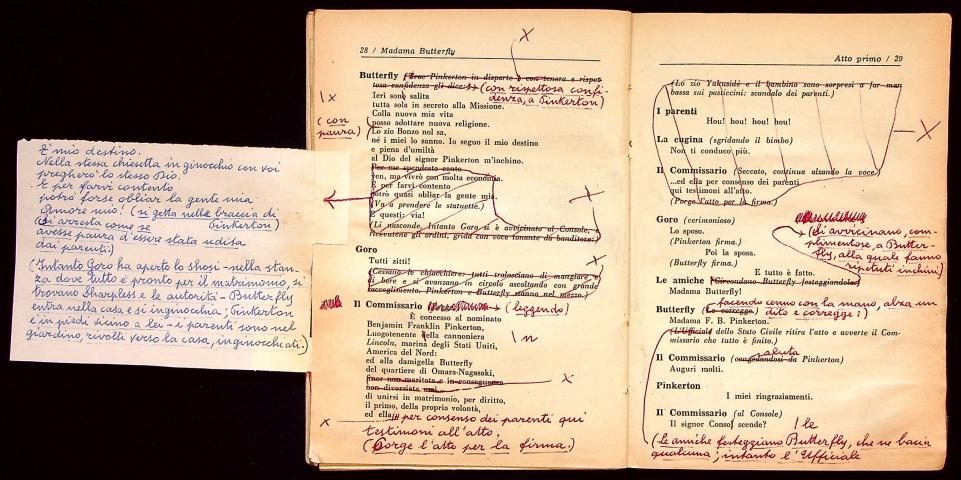 È mio destino.
Nella stessa chiesetta in ginocchio con voi
pregherò lo stesso Dio.
E per farvi contento
potrò forse obliar la gente mia.
Amore mio! (si getta nelle braccia di
(si arresta come se Pinkerton)
avesse paura d'essere stata udita
dai parenti.)
(Intanto Goro ha aperto lo shosi - nella stan-
za dove tutto è pronto per il matrimonio, si
trovano Sharpless e le autorità - Butterfly
entra nella casa e si inginocchia; Pinkerton
è in piedi vicino a lei - e parenti sono nel
giardino, rivolti verso la casa, inginocchiati.)
28 / Madama Butterfly
Butterfly (Trae Pinkerton in disparte e con tenera e rispet-
tosa confidenza gli dice:) (con rispettosa confi-
denza, a Pinkerton)
Ieri sono salita
tutta sola in secreto alla Missione.
Colla nuova mia vita
posso adottare nuova religione.
(con paura)
Lo zio Bonzo nol sa,
né i miei lo sanno. Io seguo il mio destino
e piena d'umiltà
al Dio del signor Pinkerton m'inchino.
Per me spendeste cento
yen, ma vivrò con molta economia.
E per farvi contento
potrò quasi obliar la gente mia.
(Va a prendere le statuette.)
E questi: via!
(Li nasconde. Intanto Goro si è avvicinato al Console,
ricevutene gli ordini, grida con voce tonante da banditore:)
Goro
Tutti zitti!
(Cessano le chiacchiere: tutti tralasciano di mangiare e
di bere e si avanzano in circolo ascoltando con grande
raccoglimento. Pinkerton e Butterfly stanno nel mezzo.)
Il Commissario (leggendo)
È concesso al nominato
Benjamin Franklin Pinkerton,
Luogotenente della cannoniera
Lincoln, marina degli Stati Uniti,
America del Nord:
ed alla damigella Butterfly
del quartiere di Omara-Nagasaki,
finor non maritata e in conseguenza
non divorziata mai
di unirsi in matrimonio, per diritto,
il primo, della propria volontà,
ed ella per consenso dei parenti qui
testimoni all'atto.
(Porge l'atto per la firma.)
Atto primo / 29
(Lo zio Yakusidé e il bambino sono sorpresi a far man
bassa sui pasticcini: scandalo dei parenti.)
I parenti
Hou! hou! hou! hou!
La cugina (sgridando il bimbo)
Non ti conduco più.
Il Commissario (Seccato, continua alzando la voce)
...ed ella per consenso dei parenti
qui testimoni all'atto.
(Porge l'atto per la firma.)
Goro (cerimonioso)
Lo sposo.
(Pinkerton firma.)
Poi la sposa.
(Butterfly firma.)
E tutto è fatto.
(si avvicinano, com-
plimentose, a Butter-
fly, alla quale fanno
ripetuti inchini)
Le amiche (Circondano Butterfly festeggiandola)
Madama Butterfly!
Butterfly (Le corregge) facendo cenno con la mano, alza un
dito e corregge:)
Madama F. B. Pinkerton.
(L'Ufficiale dello Stato Civile ritira l'atto e avverte il Com-
missario che tutto è finito.)
Il Commissario (congedandosi da Pinkerton) saluta
Auguri molti.
Pinkerton
I miei ringraziamenti.
Il Commissario (al Console)
Il signor Consol scende? le
(le amiche festeggiano Butterfly, che ne bacia
qualcuna; intanto l'Ufficiale